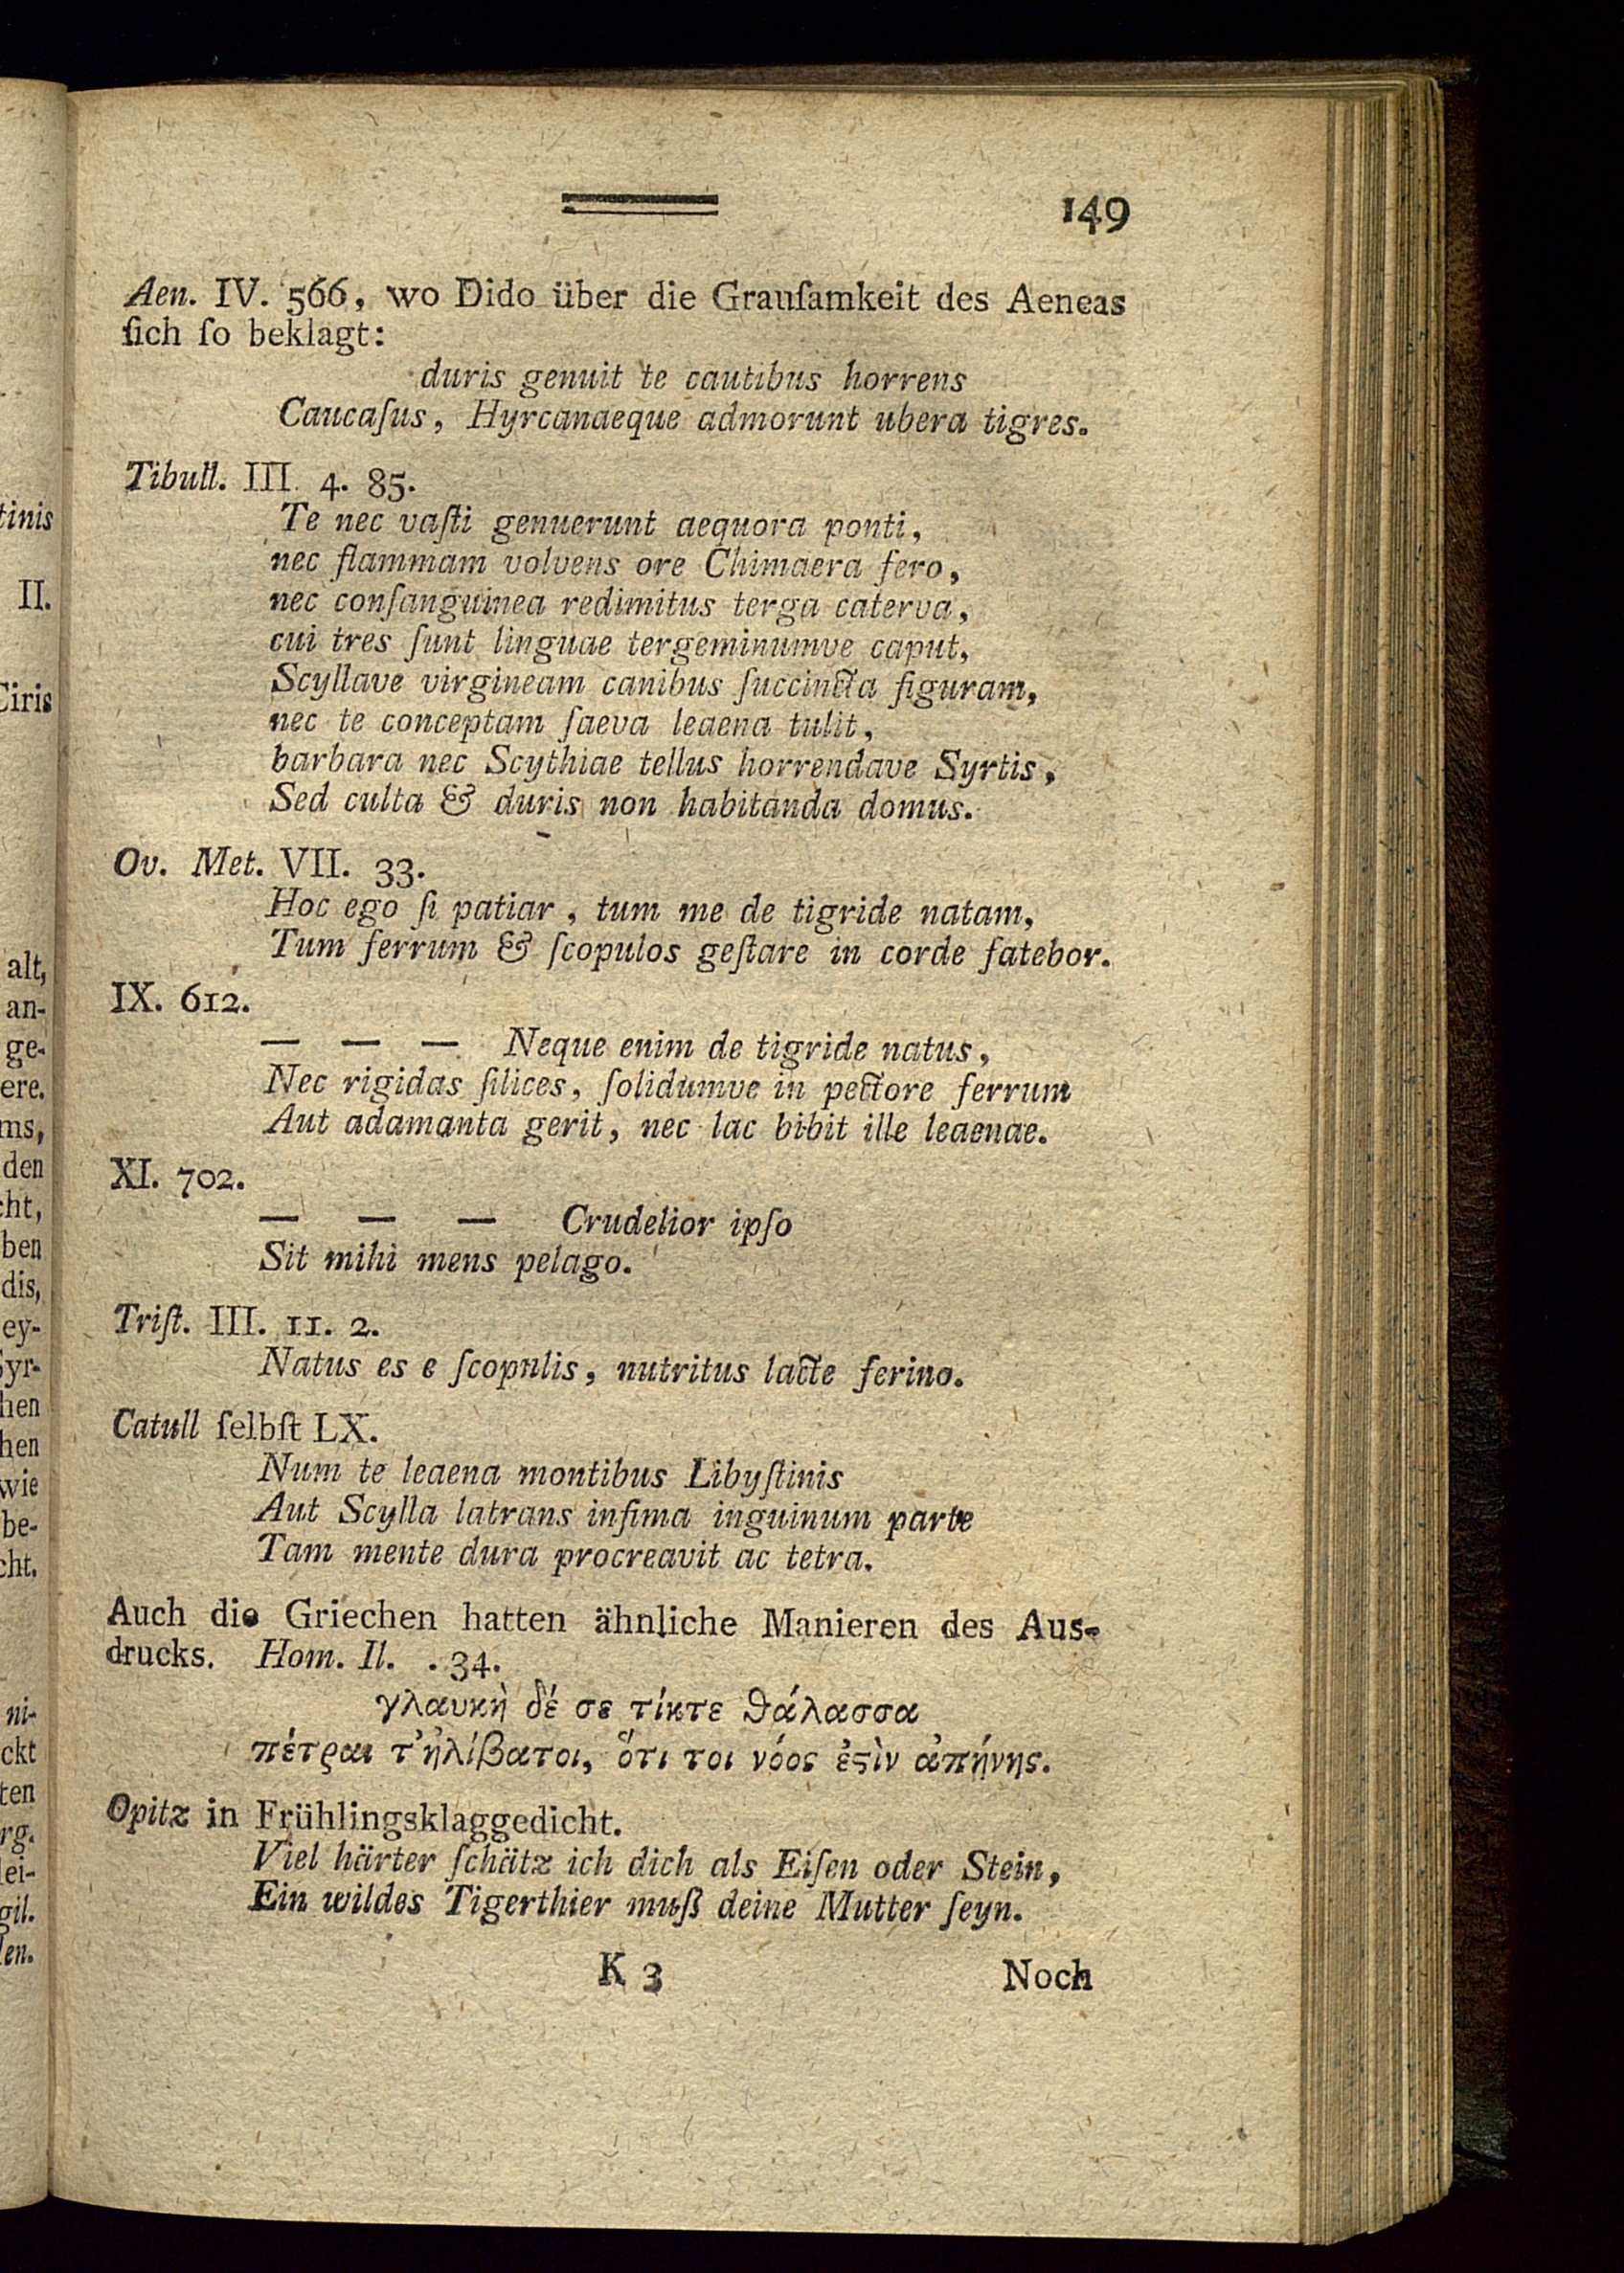 149
Aen. IV. 566, wo Dido über die Grauſamkeit des Aeneas
ſich ſo beklagt:
duris genuit te cautibus horrens
Caucaſus, Hyrcanaeque admorunt ubera tigres.
Tibull. III. 4. 85.
Te nec vaſti genuerunt aequora ponti,
nec flammam volvens ore Chimaera fero,
nec conſanguinea redimitus terga caterva,
cui tres ſunt linguae tergeminumve caput,
Scyllave virgineam canibus ſuccincta figuram,
nec te conceptam ſaeva leaena tulit,
barbara nec Scythiae tellus horrendave Syrtis,
Sed culta & duris non habitanda domus.
Ov. Met. VII. 33.
Hoc ego ſi patiar, tum me de tigride natam,
Tum ferrum & ſcopulos geſtare in corde fatebor.
IX. 612.
— — — Neque enim de tigride natus,
Nec rigidas ſilices, ſolidumve in pectore ferrum
Aut adamanta gerit, nec lac bibit ille leaenae.
XI. 702.
— — — Crudelior ipſo
Sit mihi mens pelago.
Triſt. III. 11. 2.
Natus es e ſcopnlis, nutritus lacte ferino.
Catull ſelbſt LX.
Num te leaena montibus Libyſtinis
Aut Scylla latrans infima inguinum parte
Tam mente dura procreavit ac tetra.
Auch die Griechen hatten ähnliche Manieren des Aus-
drucks. Hom. Il. . 34.
γλαυκὴ δέ σε τίκτε θάλασσα
πέτραι τ᾿ἠλίβατοι, ὅτι τοι νόος ἐϛὶν ἀπήνης.
Opitz in Frühlingsklaggedicht.
Viel härter ſchätz ich dich als Eiſen oder Stein,
Ein wildes Tigerthier muß deine Mutter ſeyn.
K 3 Noch
tinis
II.
Ciris
alt,
an-
ge-
ere.
ms,
den
cht,
ben
dis,
ey-
Syr-
hen
hen
wie
be-
cht.
ni-
ckt
ten
rg.
lei-
gil.
len.